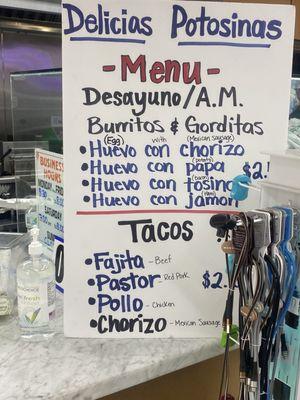 Delicias Potosinas
- Menu -
Desayuno/A.M.
Burritos & Gorditas
(Egg) with (Mexican Sausage)
• Huevo con chorizo
(potato)
• Huevo con papa $2.
(bacon)
• Huevo con tosino
(ham)
• Huevo con jamon
Tacos
• Fajita - Beef
• Pastor - Red Pork $2.
• Pollo - Chicken
• Chorizo - Mexican Sausage
BUSINESS
HOURS
MONDAY - FRIDAY
SATURDAY
fresh